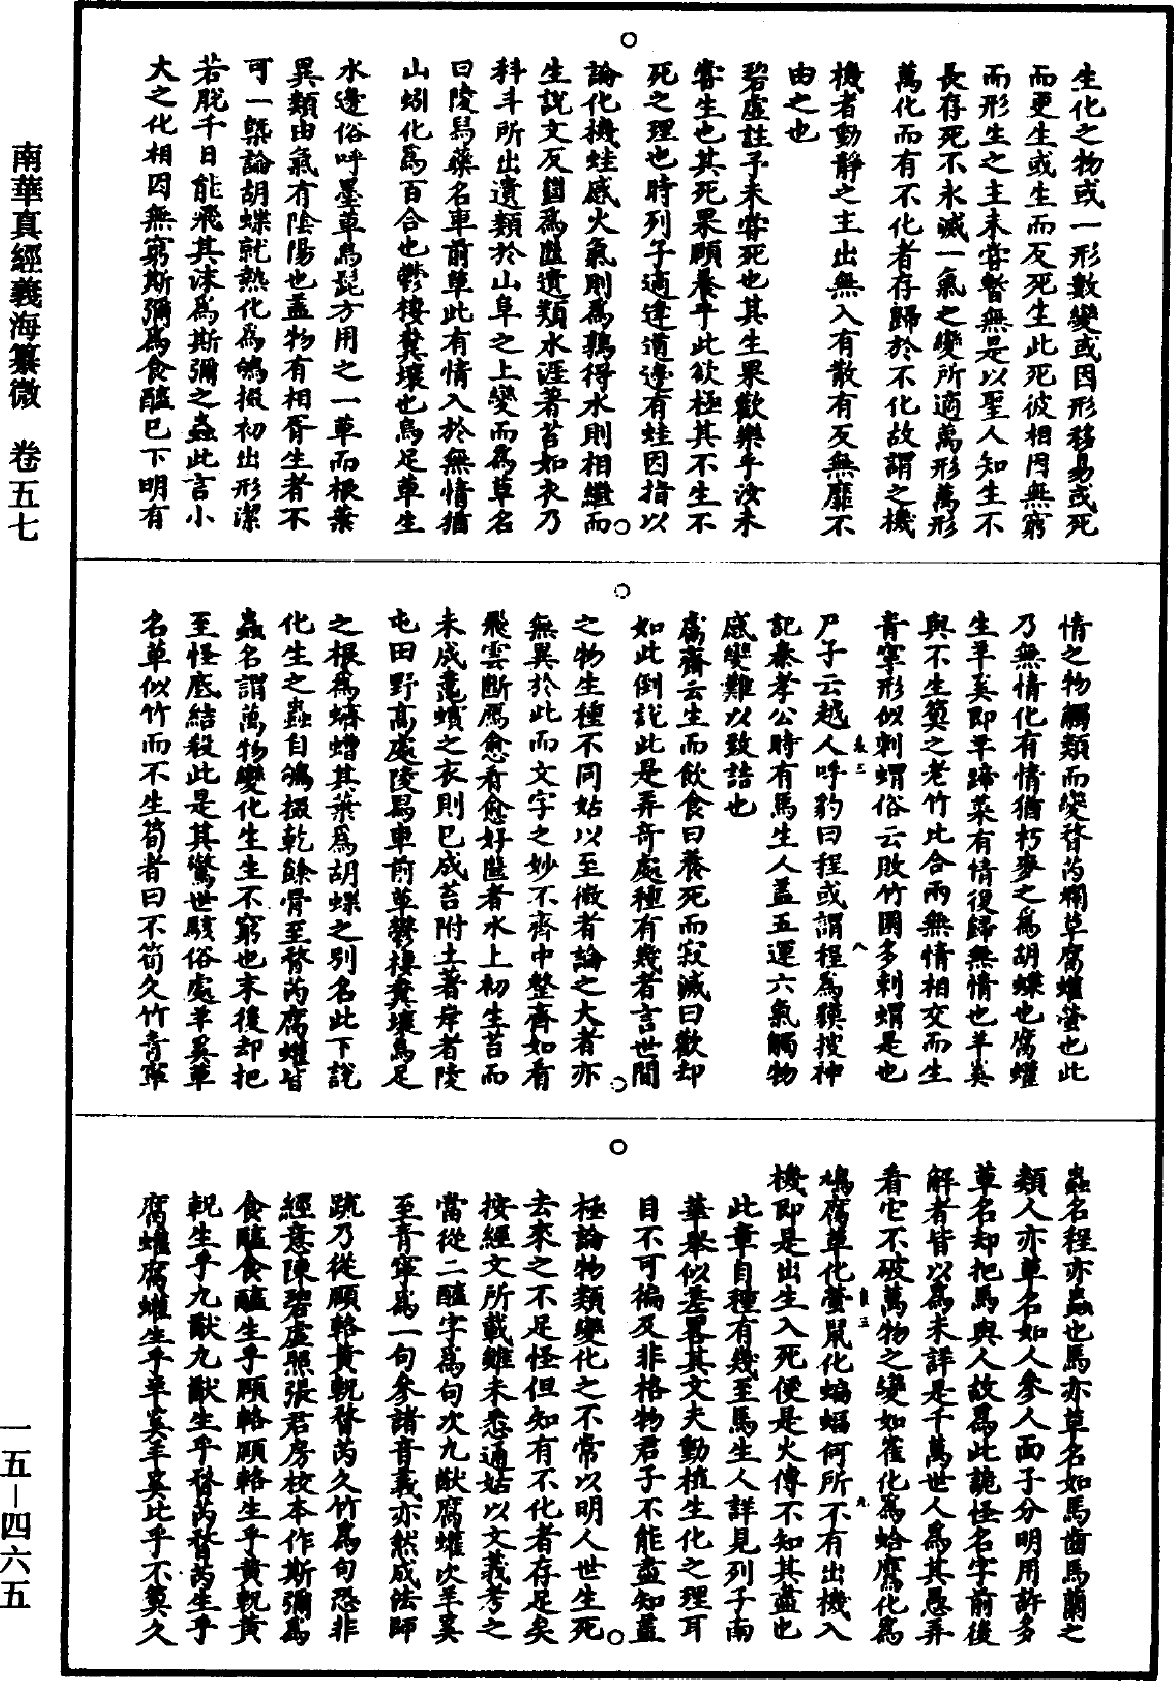 生化之物或一形數變或因形移易或死
而更生或生而反死生此死彼相因無窮
而形生之主未嘗暫無是以聖人知生不
長存死不永滅一氣之變所適萬形萬形
萬化而有不化者存歸於不化故謂之機
機者動靜之主出無入有散有反無靡不
由之也
碧虛註予未嘗死也其生果歡樂乎汝未
嘗生也其死果頤養乎此欲極其不生不
死之理也時列子適逢道邊有蛙因指以
論化機蛙感火氣則爲鶉得水則相繼而
生說文反𢇍爲㡭遺類水涯著苔如衣乃
科斗所出遺類於山阜之上變而爲草名
曰陵舄藥名車前草此有情入於無情猶
山蚓化爲百合也鬱棲糞壤也烏足草生
水邊俗呼墨草烏髭方用之一草而根葉
異類由氣有陰陽也蓋物有相胥生者不
可一槩論胡蝶就熱化爲鴝掇初出形潔
若脫千日能飛其沫爲斯彌之蟲此言小
大之化相因無窮斯彌爲食醯已下明有
情之物觸類而變瞀芮爛草腐蠸螢也此
乃無情化有情猶朽麥之爲胡蝶也腐蠸
生羊奚即羊蹄菜有情復歸無情也羊奚
與不生筍之老竹比合兩無情相交而生
青寧形似刺蝟俗云敗竹園多刺蝟是也
尸子云越人呼豹曰程或謂程爲貘搜神
記秦孝公時有馬生人蓋五運六氣觸物
感變難以致詰也
鬳齋云生而飲食曰養死而寂滅曰歡却
如此倒說此是弄奇處種有幾者言世間
之物生種不同姑以至微者論之大者亦
無異於此而文字之妙不齊中整齊如看
飛雲斷鴈愈看愈好㡭者水上初生苔而
未成鼃蠙之衣則已成苔附土著岸者陵
屯田野高處陵舄車前草鬱棲糞壤烏足
之根爲蠐螬其葉爲胡蝶之別名此下說
化生之蟲自鴝掇乾餘骨至瞀芮腐蠸皆
蟲名謂萬物變化生生不窮也末後却把
至怪底結殺此是其驚世駭俗處羊奚草
名草似竹而不生筍者曰不筍久竹青寧
蟲名程亦蟲也馬亦草名如馬齒馬蘭之
類人亦草名如人參人面子分明用許多
草名却把馬與人故爲此詭怪名字前後
解者皆以爲未詳是千萬世人爲其愚弄
看它不破萬物之變如雀化爲蛤鷹化爲
鳩腐草化螢鼠化蝙蝠何所不有出機入
機即是出生入死便是火傳不知其盡也
此章自種有幾至馬生人詳見列子南
華舉似差畧其文夫動植生化之理耳
目不可徧及非格物君子不能盡知蓋
極論物類變化之不常以明人世生死
去來之不足怪但知有不化者存足矣
按經文所載雖未悉通姑以文義考之
當從二醯字爲句次九猷腐蠸次羊奚
至青寧爲一句參諸音義亦然成法師
疏乃從頤輅黃軦瞀芮久竹爲句恐非
經意陳碧虛照張君房校本作斯彌爲
食醯食醯生乎頤輅頤輅生乎黃軦黃
軦生乎九猷九猷生乎瞀芮瞀芮生乎
腐蠸腐蠸生乎羊奚羊奚比乎不筍久
南華真經義海纂微　卷五七
一五－四六五